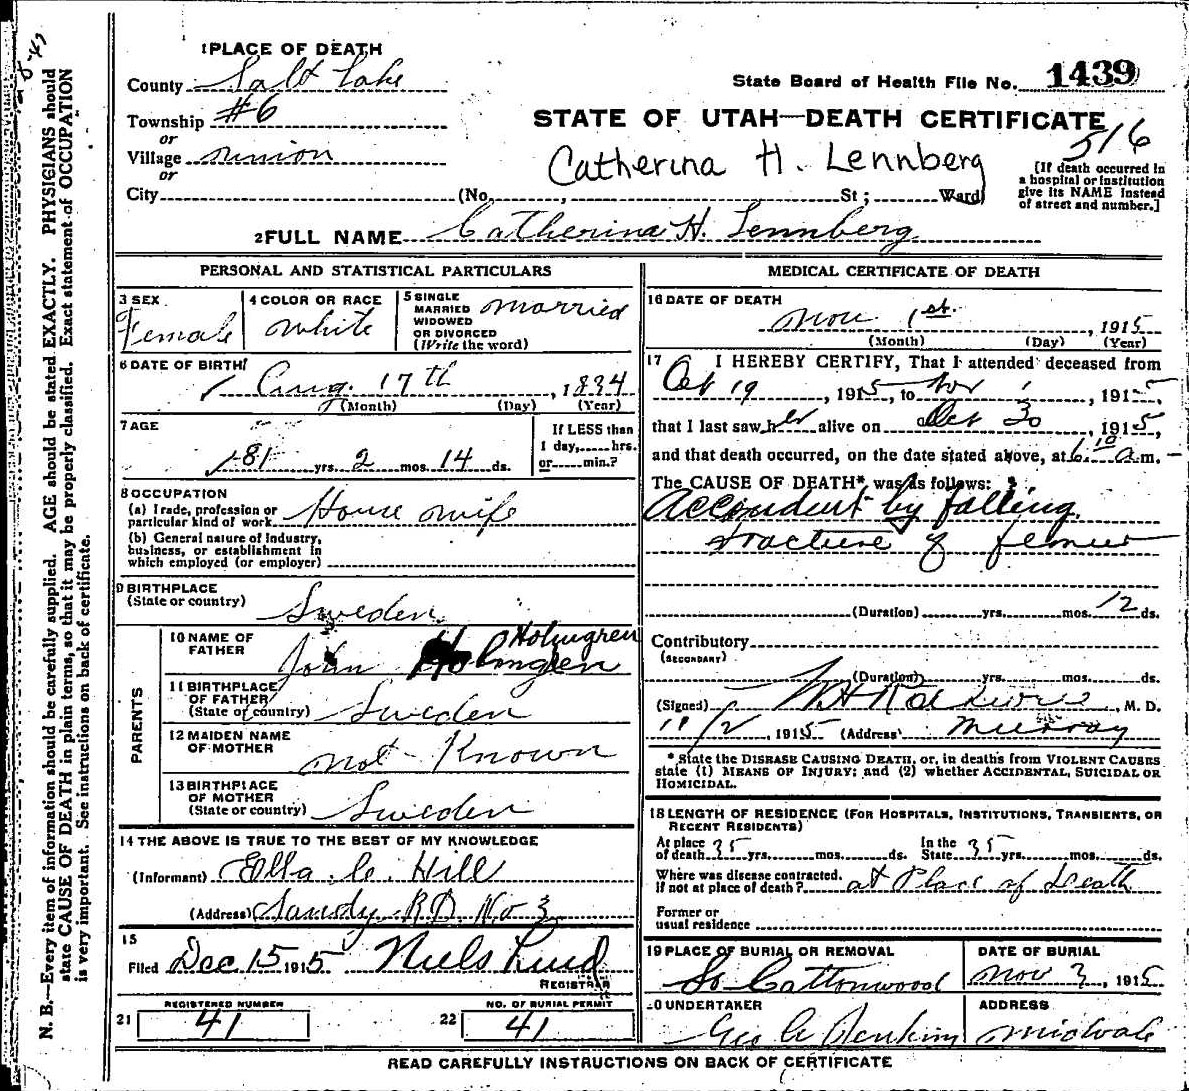 1 PLACE OF DEATH
County Salt Lake
State Board of Health File No. 1439
Township #6
STATE OF UTAH—DEATH CERTIFICATE
or
516
Village Union
Catherina H. Lennberg
or
City (No. , St; Ward)
[If death occurred in
a hospital or institution
give its NAME instead
of street and number.]
2 FULL NAME Catherina H. Lennberg
PERSONAL AND STATISTICAL PARTICULARS
3 SEX
Female
4 COLOR OR RACE
White
5 SINGLE
MARRIED
WIDOWED
OR DIVORCED
(Write the word)
Married
6 DATE OF BIRTH
Aug. 17th, 1834
(Month) (Day) (Year)
7 AGE
81 yrs. 2 mos. 14 ds.
If LESS than
1 day, hrs.
or min.?
8 OCCUPATION
(a) Trade, profession or
particular kind of work House wife
(b) General nature of industry,
business, or establishment in
which employed (or employer)
9 BIRTHPLACE
(State or country)
Sweden
PARENTS
10 NAME OF
FATHER
Holmgren
John Holmgren
11 BIRTHPLACE
OF FATHER
(State or country) Sweden
12 MAIDEN NAME
OF MOTHER
not Known
13 BIRTHPLACE
OF MOTHER
(State or country) Sweden
14 THE ABOVE IS TRUE TO THE BEST OF MY KNOWLEDGE
(Informant) Ella C. Hill
(Address) Sandy R.D. No 3
15
Filed Dec 15 1915 Niels Lind
REGISTRAR
REGISTERED NUMBER
21 41
NO. OF BURIAL PERMIT
22 41
MEDICAL CERTIFICATE OF DEATH
16 DATE OF DEATH
Nov 1st. , 1915
(Month) (Day) (Year)
17 I HEREBY CERTIFY, That I attended deceased from
Oct 19 , 1915, to Nov 1 , 1915,
that I last saw her alive on Oct 30 , 1915,
and that death occurred, on the date stated above, at 6.10 a.m.
The CAUSE OF DEATH* was as follows:
Accendent by falling
fracture of femur
(Duration) yrs. mos. 12 ds.
Contributory
(SECONDARY)
(Duration) yrs. mos. ds.
(Signed) , M. D.
11/2 , 1915 (Address) Murray
* State the DISEASE CAUSING DEATH, or, in deaths from VIOLENT CAUSES
state (1) MEANS OF INJURY; and (2) whether ACCIDENTAL, SUICIDAL OR
HOMICIDAL.
18 LENGTH OF RESIDENCE (FOR HOSPITALS, INSTITUTIONS, TRANSIENTS, OR
RECENT RESIDENTS)
At place
of death 35 yrs. mos. ds.
In the
State 35 yrs. mos. ds.
Where was disease contracted,
if not at place of death? at Place of Death
Former or
usual residence
19 PLACE OF BURIAL OR REMOVAL
So Cottonwood
DATE OF BURIAL
Nov 3, 1915
20 UNDERTAKER
Geo A Jenkins
ADDRESS
Midvale
READ CAREFULLY INSTRUCTIONS ON BACK OF CERTIFICATE
N. B.—Every item of information should be carefully supplied. AGE should be stated EXACTLY. PHYSICIANS should
state CAUSE OF DEATH in plain terms, so that it may be properly classified. Exact statement of OCCUPATION
is very important. See instructions on back of certificate.